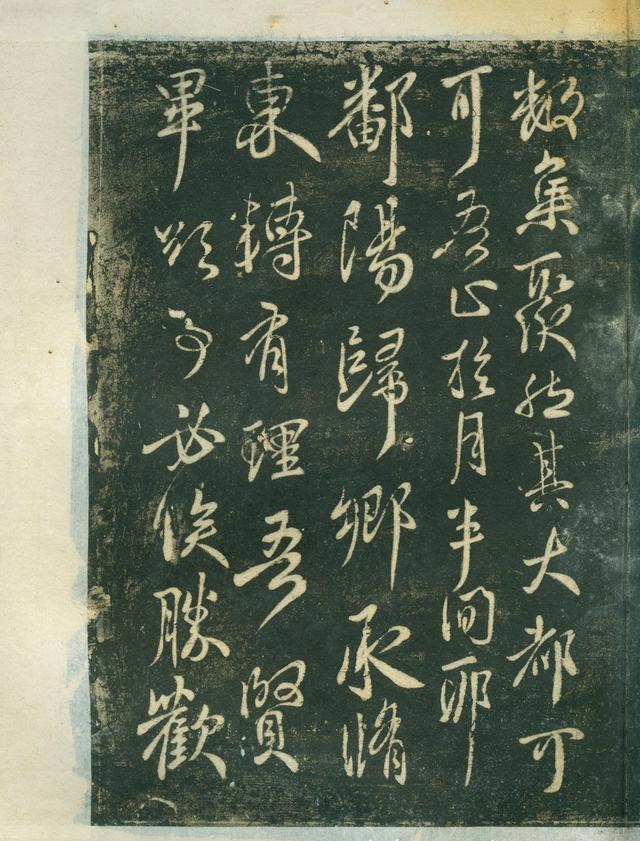 數集聚然其大都可
可吾止於月半間耶
鄱陽歸鄉承脩
東轉有理吾賢
畢欲事必俟勝歡